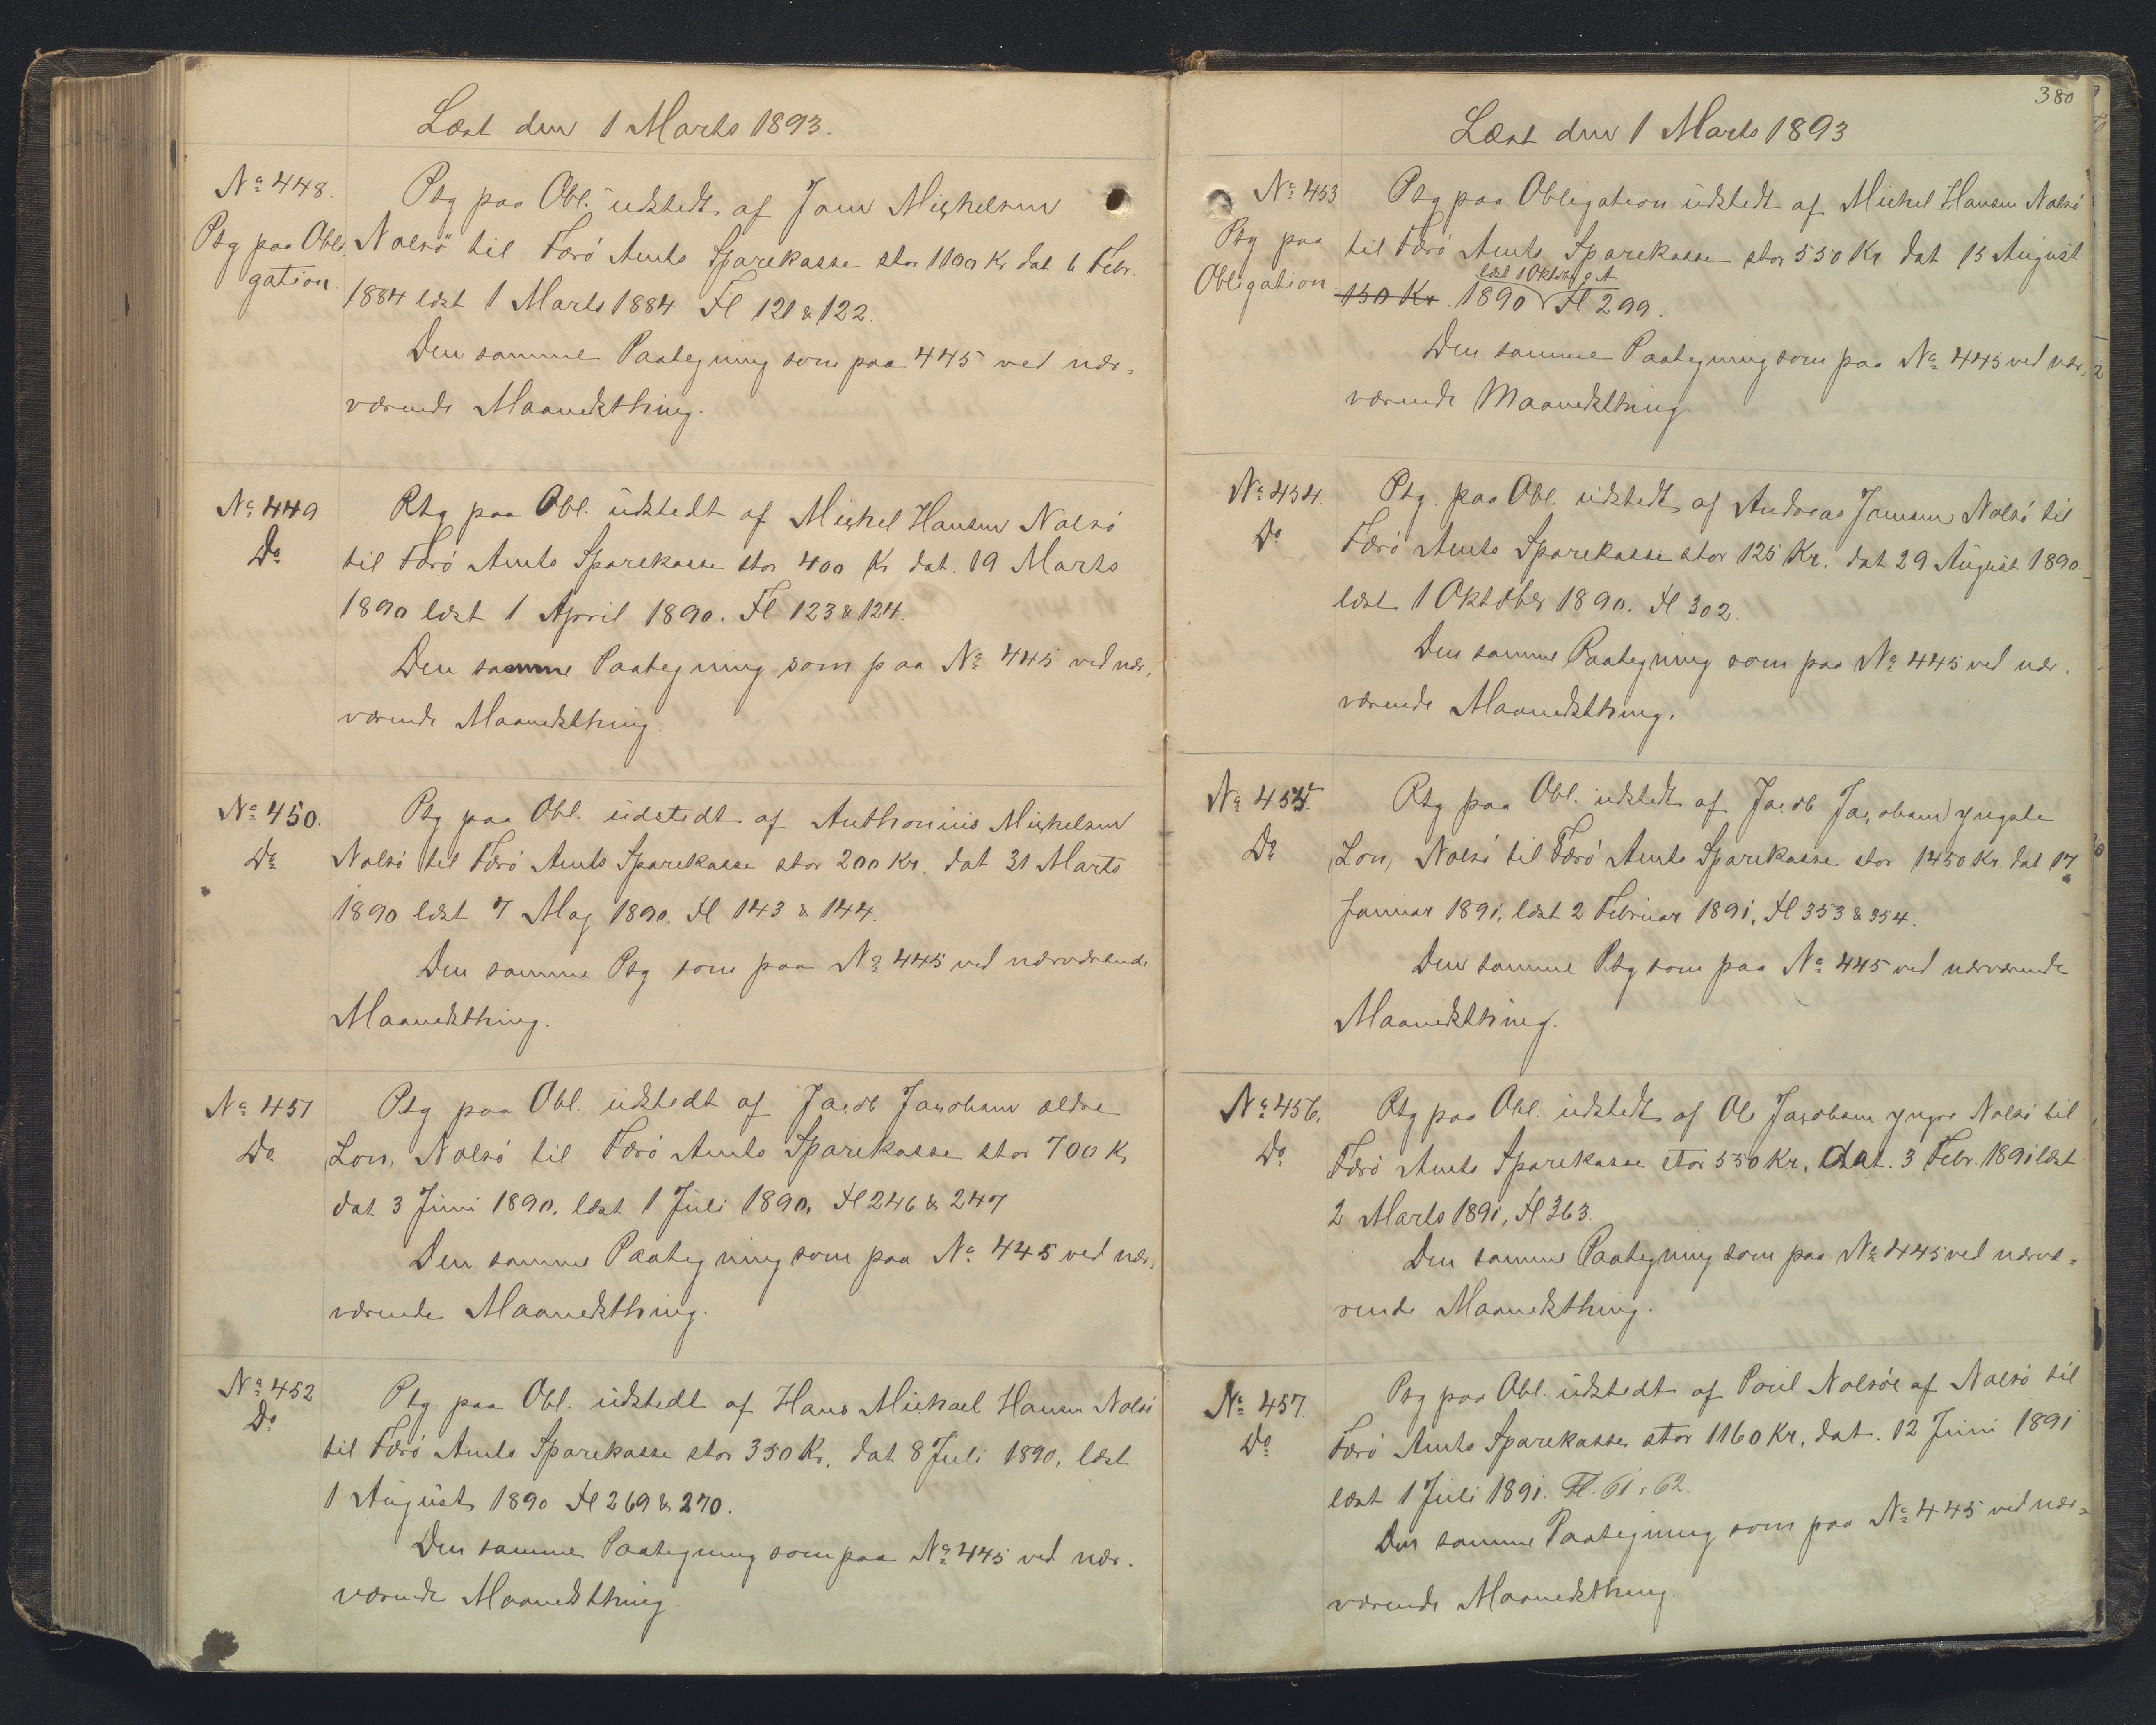 Læst den 1 Marts 1893.
No 448.
Ptg paa Obli
gation.
Ptg paa Obl. udstedt af Jem Michelsen
Nolsö til Færö Amts Sparekasse stor 1100 Kr dat 6 Febr.
1884 læst 1 Marts 1884 Fl 121 & 122.
Den samme Paategning som paa 445 ved nær-
værende Maanedsthing.
No 449
Do
Ptg paa Obl. udstedt af Michel Hansen Nolsö
til Færö Amts Sparekasse stor 400 Kr dat. 19 Marts
1890 læst 1 April 1890. Fl 123 & 124.
Den samme Paategning som paa No 445 ved nær-
værende Maanedsthing.
No 450.
Do
Ptg paa Obl. udstedt af Anthonius Michelsen
Nolsö til Færö Amts Sparekasse stor 200 Kr. dat 31 Marts
1890 læst 7 Maj 1890. Fl 143 & 144.
Den samme Ptg som paa No 445 ved nærværende
Maanedsthing.
No 451
Do
Ptg paa Obl. udstedt af Jacob Jacobsen ældre
Lon, Nolsö til Færö Amts Sparekasse stor 700 Kr
dat 3 Juni 1890, læst 1 Juli 1890, Fl 246 & 247
Den samme Paategning som paa No 445 ved nær-
værende Maanedsthing.
No 452
Do
Ptg. paa Obl. udstedt af Hans Michael Hansen Nolsö
til Færö Amts Sparekasse stor 350 Kr. dat 8 Juli 1890, læst
1 August 1890 Fl 269 & 270.
Den samme Paategning som paa No 445 ved nær-
værende Maanedsthing.
380
Læst den 1 Marts 1893
No 453
Ptg paa
Obligation
Ptg paa Obligation udstedt af Michel Hansen Nolsö
til Færö Amts Sparekasse stor 550 Kr dat 15 August
læst 1 Oktober s. A
150 Kr. 1890 Fl 299.
Den samme Paategning som paa No 445 ved nær-
værende Maanedsthing.
No 454.
Do
Ptg. paa Obl. udstedt af Andreas Jensen Nolsö til
Færö Amts Sparekasse stor 125 Kr. dat 29 August 1890
læst 1 Oktober 1890. Fl 302.
Den samme Paategning som paa No 445 ved nær-
værende Maanedsthing.
No 455.
Do
Ptg paa Obl. udstedt af Jacob Jacobsen yngste
Lon, Nolsö til Færö Amts Sparekasse stor 1450 Kr. dat 17
Januar 1891, læst 2 Februar 1891, Fl 353 & 354.
Den samme Ptg som paa No 445 ved nærværende
Maanedsthing.
No 456.
Do
Ptg paa Obl. udstedt af Ole Jacobsen yngre Nolsö til
Færö Amts Sparekasse stor 550 Kr. dat. 3 Febr. 1891 læst
2 Marts 1891, Fl 363.
Den samme Paategning som paa No 445 ved nærvæ-
rende Maanedsthing.
No 457.
Do
Ptg paa Obl. udstedt af Poul Nolsöe af Nolsö til
Færö Amts Sparekasse stor 1160 Kr, dat. 12 Juni 1891
læst 1 Juli 1891. Fl. 61 & 62.
Den samme Paategning som paa No 445 ved nær-
værende Maanedsthing.